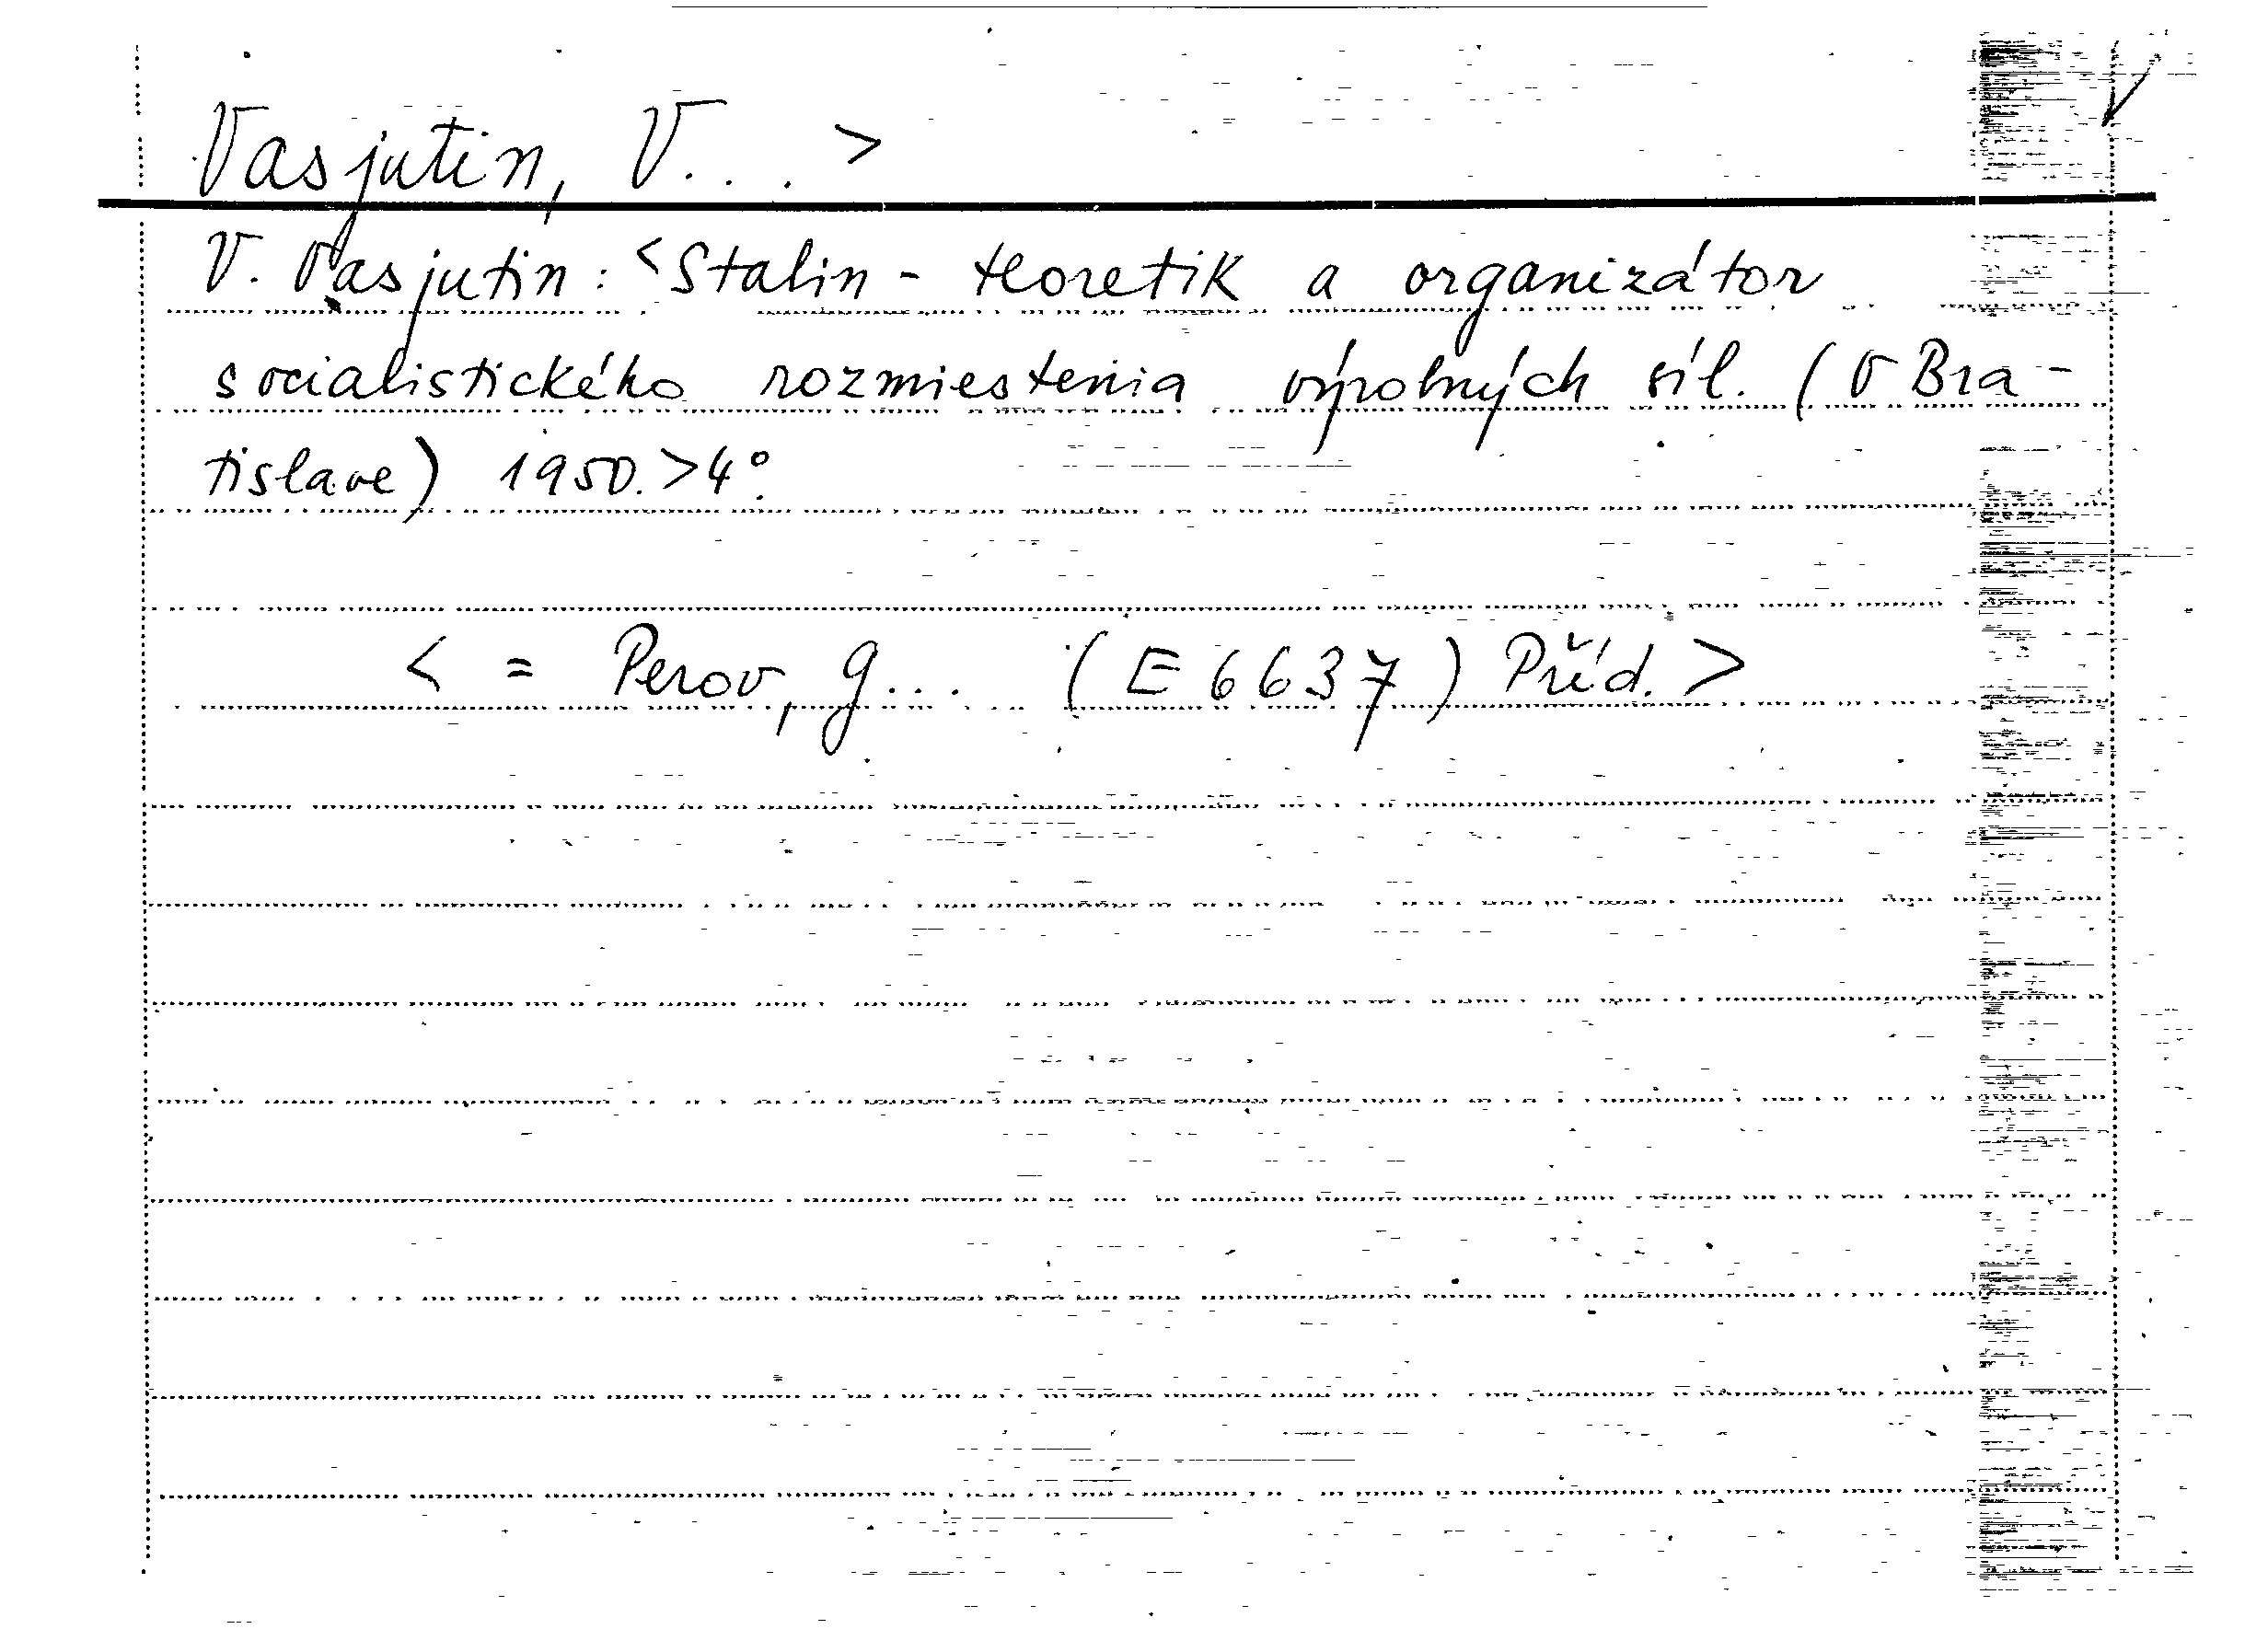 Vasjutin, V... >
V. Vasjutin: <Stalin - teoretik a organizátor
socialistického rozmiestenia výrobných síl. (V Bra-
tislave) 1950.>4°.
< = Perov, G... (E 6637) Příd. >